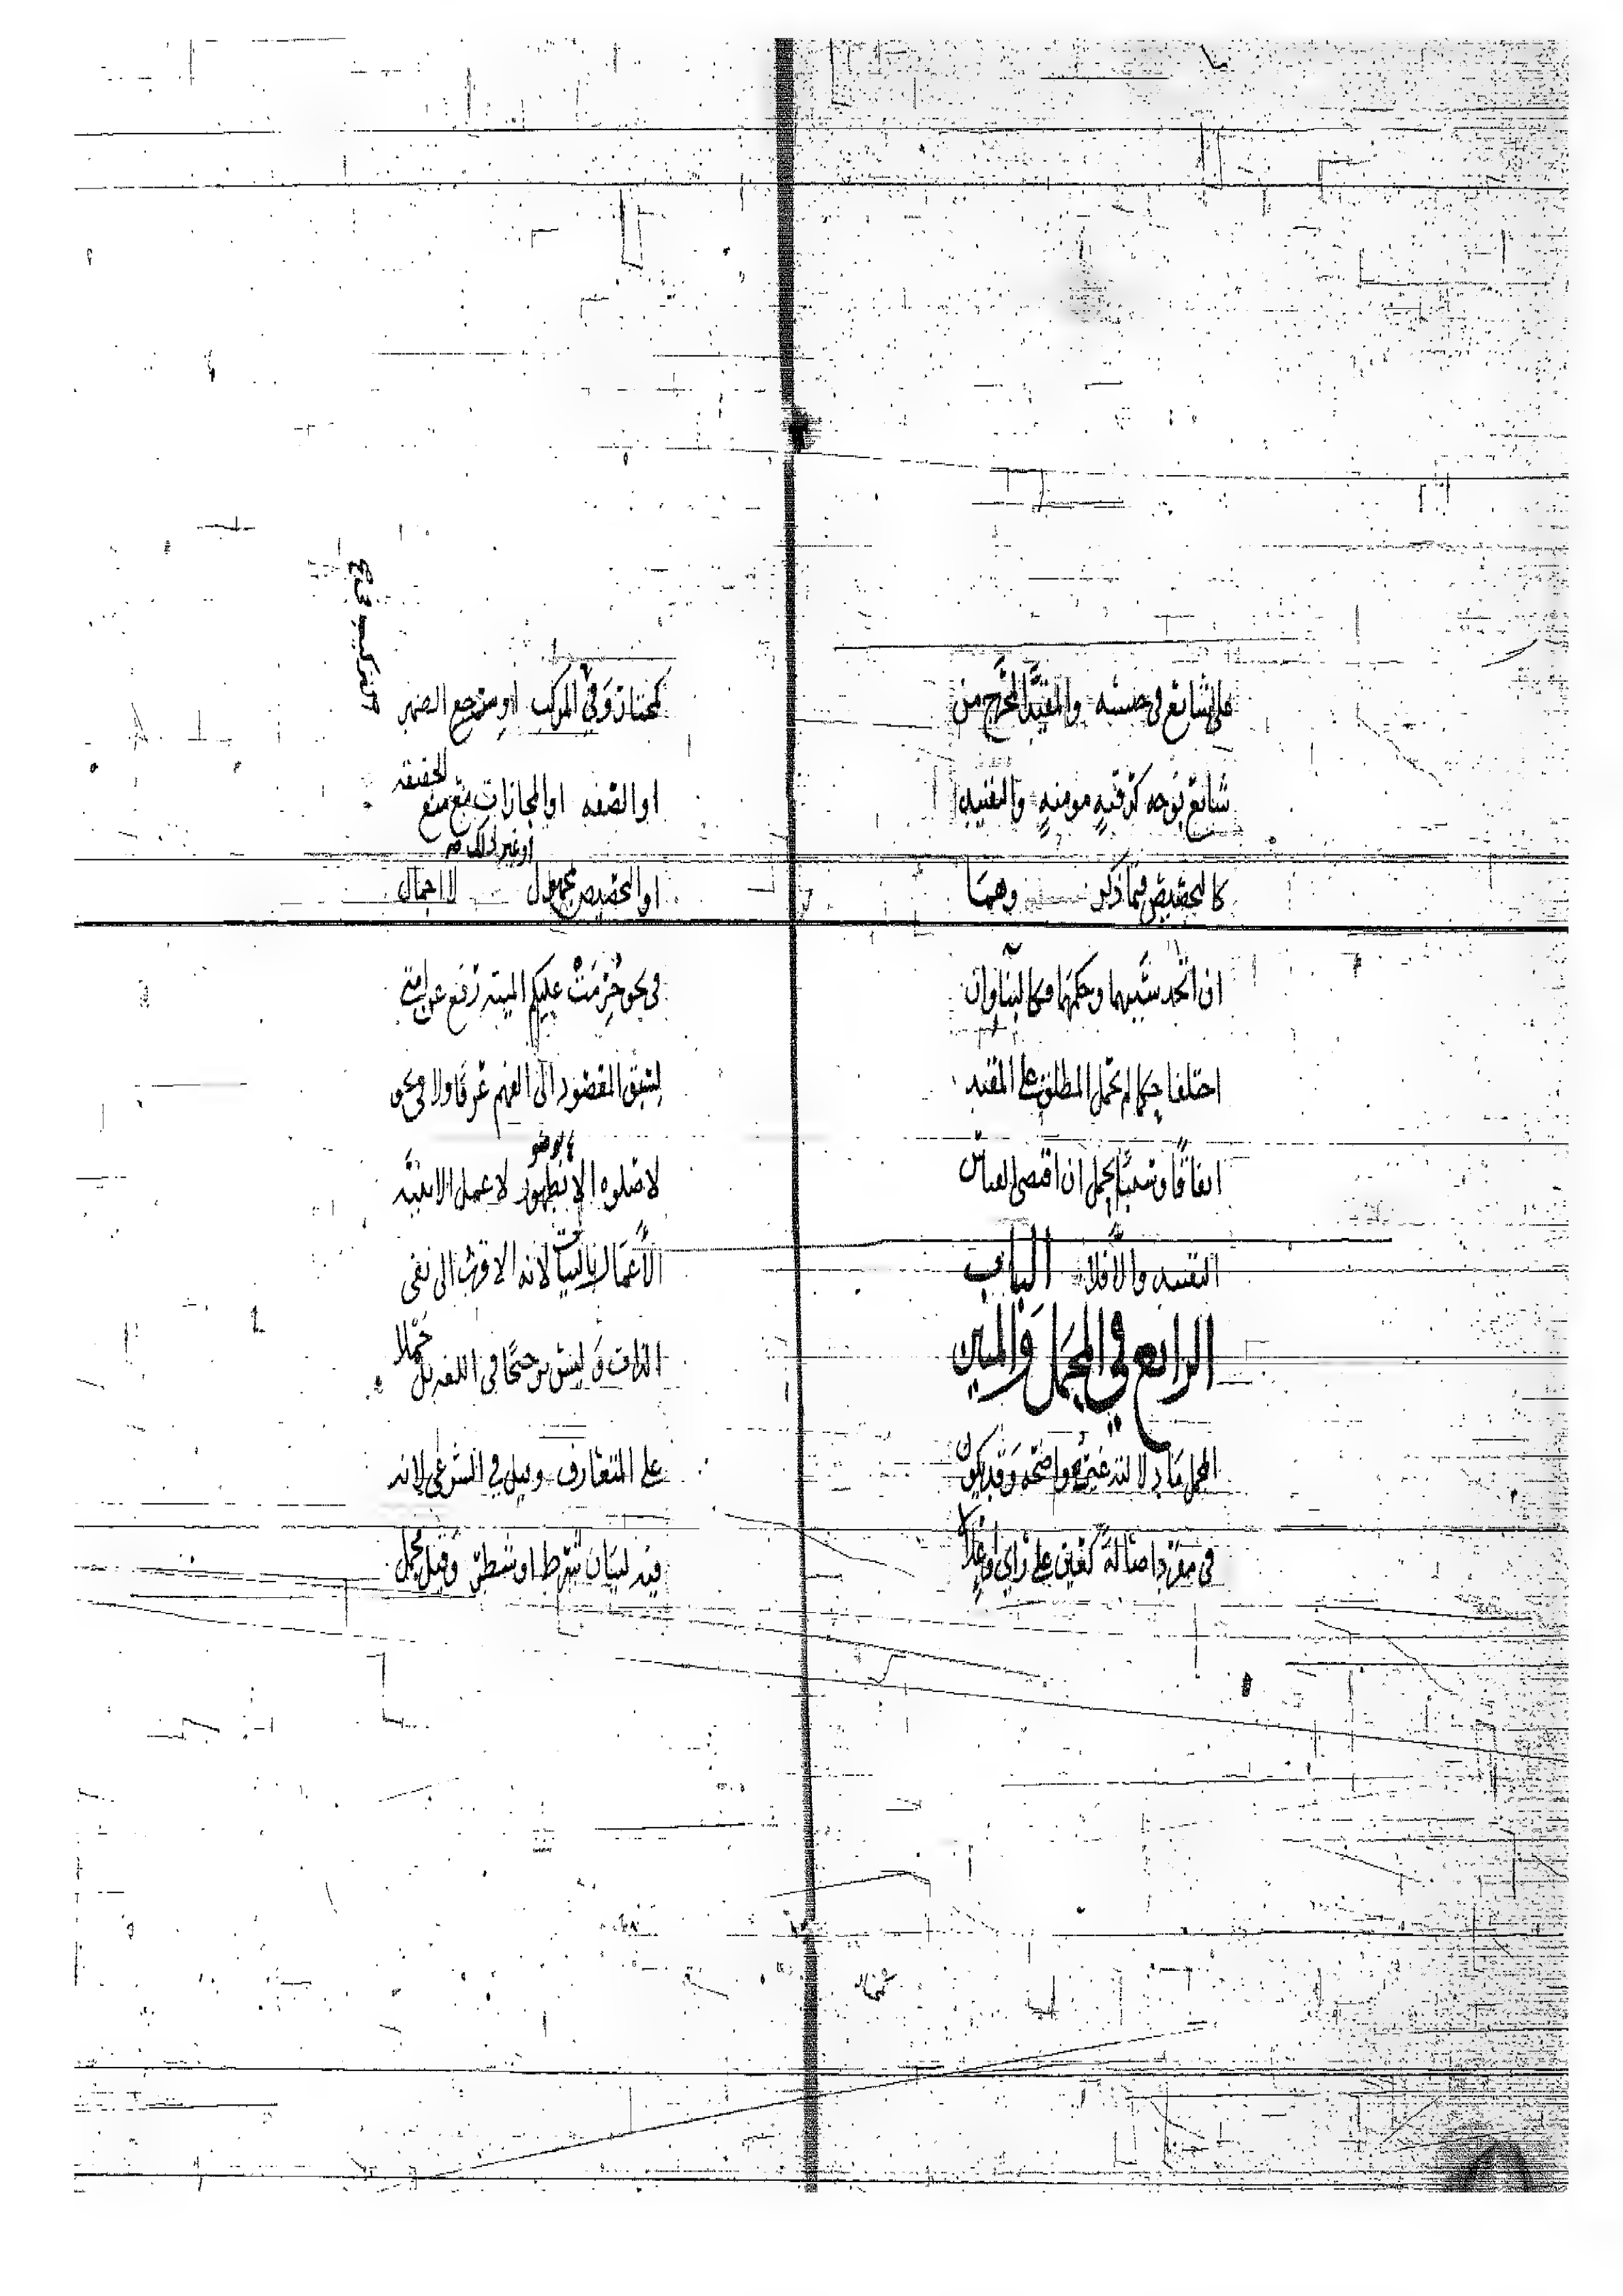 على شائع في جنسه والمقيد المخرج من
شائع بوجه كرقبة مومنة والتقييد
كالتخصيص فيما ذكر وهما
ان اتحد سببهما وحكمهما فكالبنا وان
اختلفا حكما لم يحمل المطلق على المقيد
اتفاقا وسببا يحمل ان اقتضى القياس
التقييد والا فلا الباب
الرابع في المجمل والمبين
المجمل ما دلالته غير واضحة وقد يكون
في مفرد اصالة كعين على راي او اعلالا
كمختار وفي المركب او مرجع الضمير
او الصفه او المجازات مع منع
الحقيقه
او غير ذلك
او التخصيص بمجهول لا اجمال
في نحو حرمت عليكم الميته رفع عن امتي
لسبق المقصود الى الفهم عرفا ولا في نحو
لا صلوه الا بطهور لا عمل الا بنيه
الاعمال بالنيات لانه الاقرب الى نفي
الذات وليس ترجيحا في اللغه بل حملا
على المتعارف وقيل في الشرعي لانه
فيه لبيان شرط او شطر وقيل مجمل